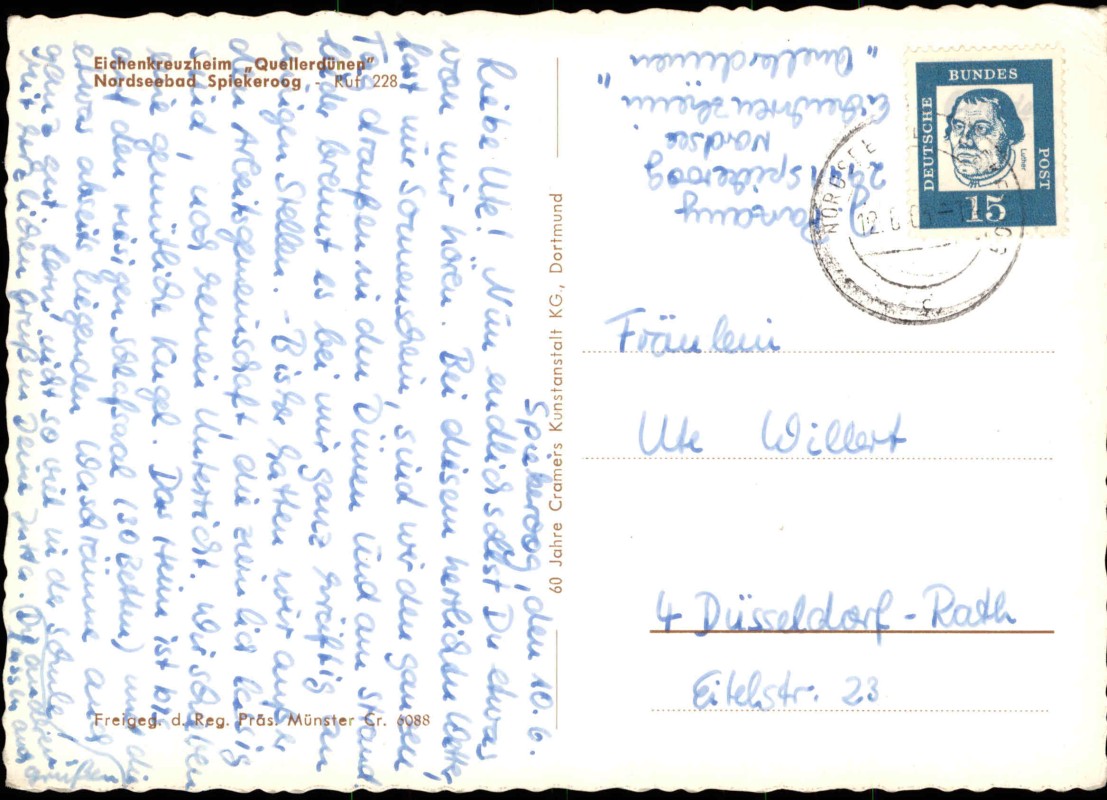 Eichenkreuzheim „Quellerdünen"
Nordseebad Spiekeroog - Ruf 228
Spiekeroog, den 10.6.
Liebe Ute! Nun endlich sollst Du etwas
von mir hören. Bei diesem herrlichen Wetter,
fast nur Sonnenschein, sind wir den ganzen
Tag draußen in den Dünen und am Strand.
Leider brennt es bei mir ganz kräftig an
einigen Stellen. - Bisher hatten wir außer
der Arbeitsgemeinschaft, die ziemlich lässig
sind, noch keinen Unterricht. Wir schieben
eine gemütliche Kugel. Das Heim ist bis
auf den riesigen Schlafsaal (30 Betten) und die
etwas abseits liegenden Waschräume auch
ganz gut. Lern nicht so viel in der Schule!
Mit herzlichen Grüßen Deine Jutta. Die anderen
lassen auch grüßen
Freigeg. d. Reg. Präs. Münster Cr. 6088
60 Jahre Cramers Kunstanstalt KG., Dortmund
Spiekeroog
Nordsee
Eichenkreuzheim
"Quellerdünen"
DEUTSCHE
BUNDES
POST
Luther
15
NORDSEE
12.6.
c
Fräulein
Ute Willert
4 Düsseldorf-Rath
Eitelstr. 23